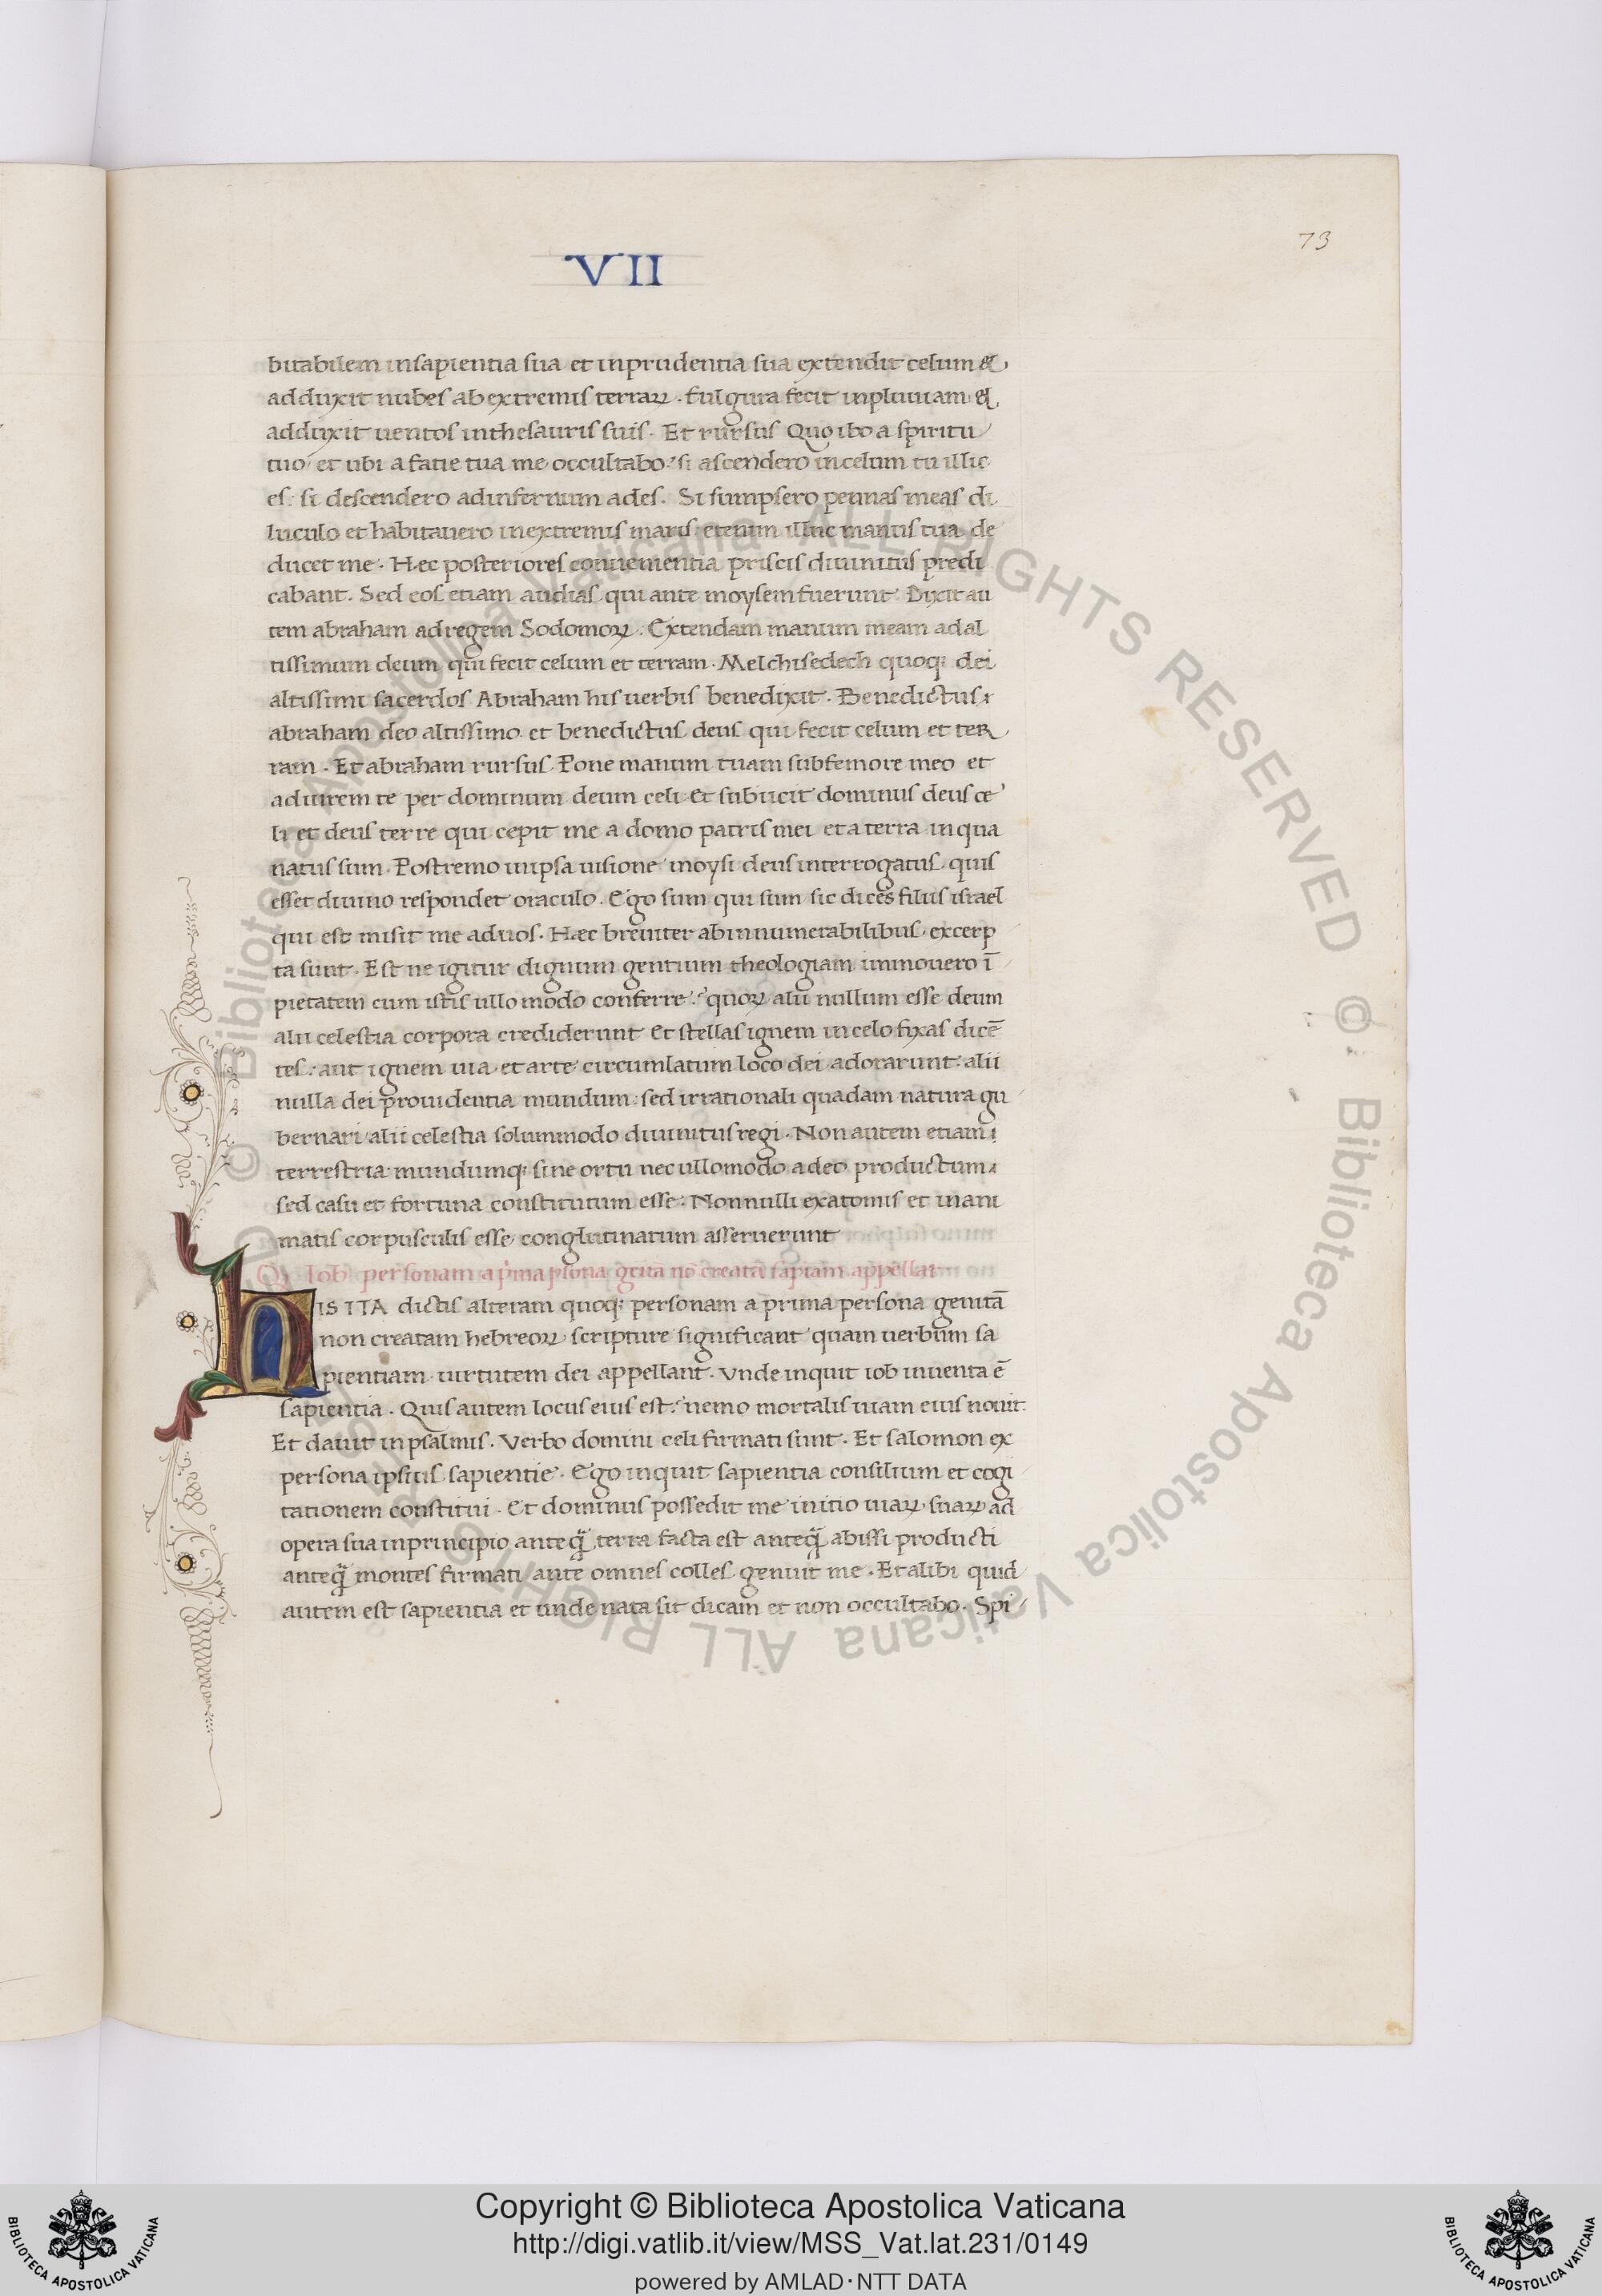 73
VII
bitabilem insapientia sua et inprudentia sua extendit celum &
adduxit nubes ab extremis terraꝝ. fulgura fecit inpluuiam &
adduxit uentos inthesauris suis. Et rursus Quo ibo a spiritu
tuo et ubi a fatie tua me occultabo? si ascendero incelum tu illic
es: si descendero adinfernum ades. Si sumpsero pennas meas di
luculo et habitauero inextremis maris: etenim illuc manus tua de
ducet me. Hec posteriores conuementia priscis diuinitus predi
cabant. Sed eos etiam audias qui ante moysem fuerunt. Dixit au
tem abraham adregem Sodomoꝝ. Extendam manum meam ad al
tissimum deum qui fecit celum et terram. Melchisedech quoq: dei
altissimi sacerdos Abraham his uerbis benedixit. Benedictus
abraham deo altissimo et benedictus deus qui fecit celum et ter
ram. Et abraham rursus. Pone manum tuam subfemore meo et
adiurem te per dominum deum celi. Et subiicit dominus deus ce
li et deus terre qui cepit me a domo patris mei et a terra inqua
natus sum. Postremo inipsa uisione moysi deus interrogatus quis
esset diuino respondet oraculo. Ego sum qui sum sic dices filiis israel
qui est misit me aduos. Hæc breuiter ab innumerabilibus excerp
ta sunt. Est ne igitur dignum gentium theologiam immouero ī
pietatem cum istis ullo modo conferre? quoꝝ alii nullum esse deum
alii celestia corpora crediderunt Et stellas ignem in celo fixas dicē
tes: aut ignem uia et arte circumlatum loco dei adorarunt: alii
nulla dei prouidentia mundum: sed irrationali quadam natura gu
bernari alii celestia solummodo diuinitus regi. Non autem etiam
terrestria mundumq: sine ortu nec ullomodo a deo productum
sed casu et fortuna constitutum esse: Nonnulli exatomis et inani
matis corpusculis esse conglutinatum asseruerunt
Iob personam a p̄ma psona gēita nō creatā sapiam appellat
HIS ITA dictis alteram quoq: personam a prima persona genitā
non creatam hebreoꝝ scripture significant quam uerbum sa
pientiam uirtutem dei appellant. Vnde inquit iob inuenta ē
sapientia. Quis autem locus eius est? nemo mortalis uiam eius nouit.
Et dauit in psalmis. Verbo domini celi firmati sunt. Et salomon ex
persona ipsius sapientie. Ego inquit sapientia consilium et cogi
tationem constitui. Et dominus possedit me initio uiaꝝ suaꝝ ad
opera sua inprincipio anteq̄ terra facta est anteq̄ abissi producti
anteq̄ montes firmati ante omnes colles genuit me. Et alibi quid
autem est sapientia et unde nata sit dicam et non occultabo. Spi
© Biblioteca Apostolica Vaticana ALL RIGHTS RESERVED © Biblioteca Apostolica Vaticana ALL RIGHTS RESERVED
Copyright © Biblioteca Apostolica Vaticana
http://digi.vatlib.it/view/MSS_Vat.lat.231/0149
powered by AMLAD·NTT DATA
BIBLIOTECA APOSTOLICA VATICANA
BIBLIOTECA APOSTOLICA VATICANA